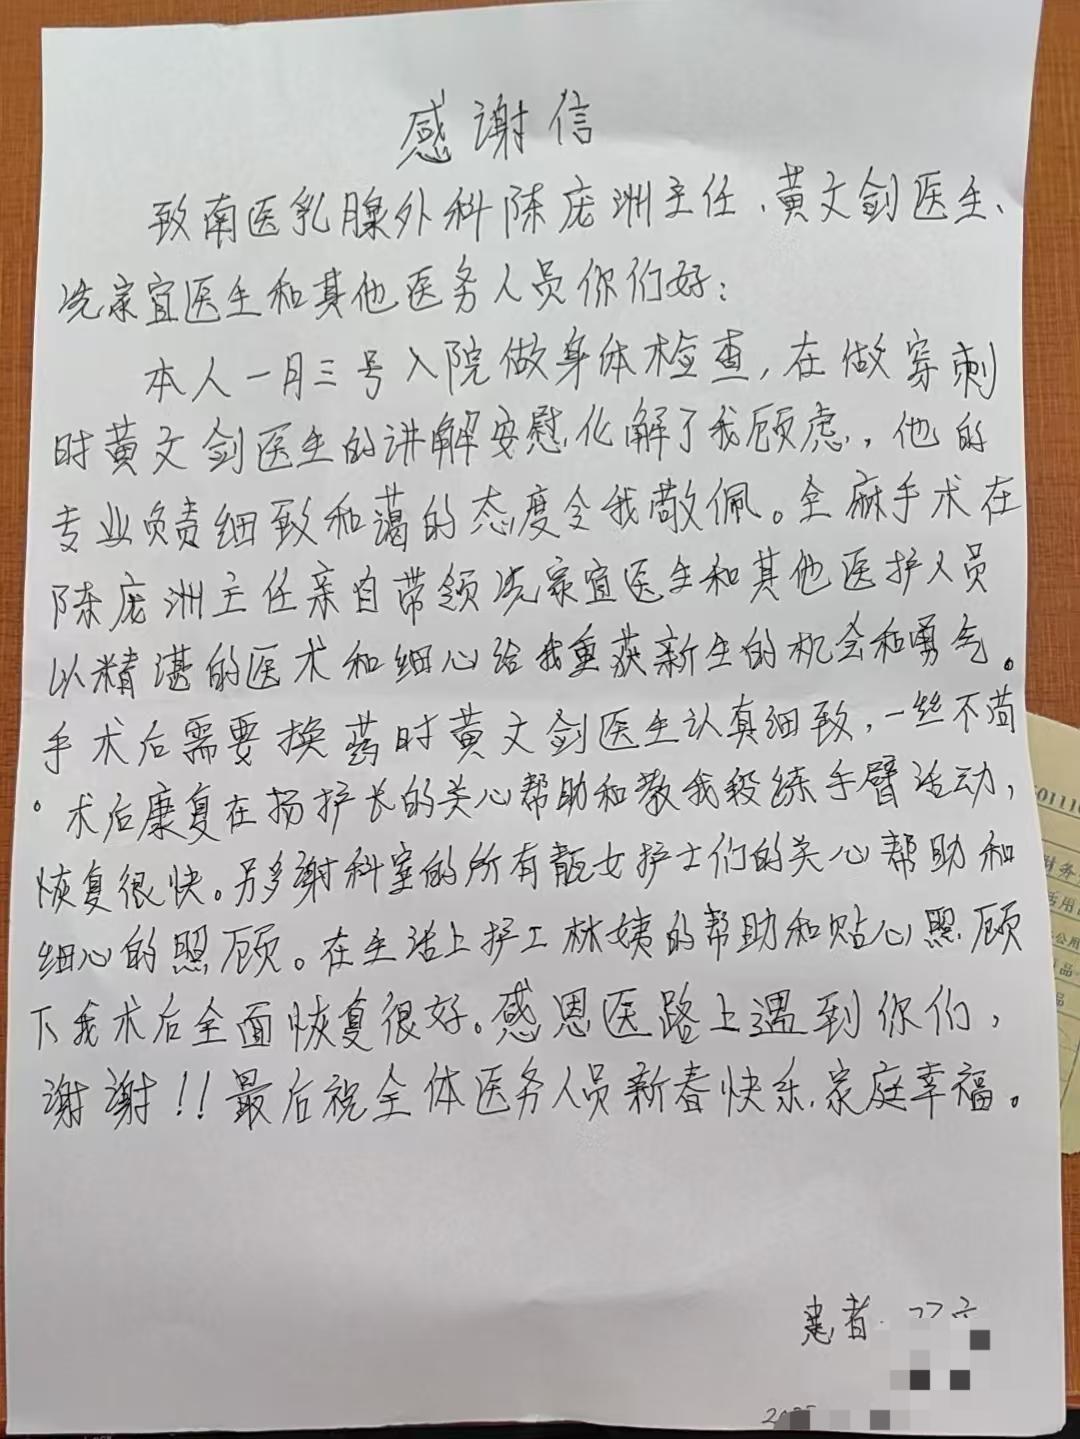 感谢信
致南医乳腺外科陈庞洲主任、黄文剑医生、
冼家宜医生和其他医务人员你们好：
本人一月三号入院做身体检查，在做穿刺
时黄文剑医生的讲解安慰,化解了我顾虑,，他的
专业负责细致和蔼的态度令我敬佩。全麻手术在
陈庞洲主任亲自带领冼家宜医生和其他医护人员
以精湛的医术和细心给我重获新生的机会和勇气。
手术后需要换药时黄文剑医生认真细致，一丝不苟
。术后康复在扬护长的关心帮助和教我锻练手臂活动，
恢复很快。另多谢科室的所有靓女护士们的关心帮助和
细心的照顾。在生活上护工林姨的帮助和贴心照顾
下我术后全面恢复很好。感恩医路上遇到你们，
谢谢！！最后祝全体医务人员新春快乐,家庭幸福。
患者
财务
活用
公用
品
品